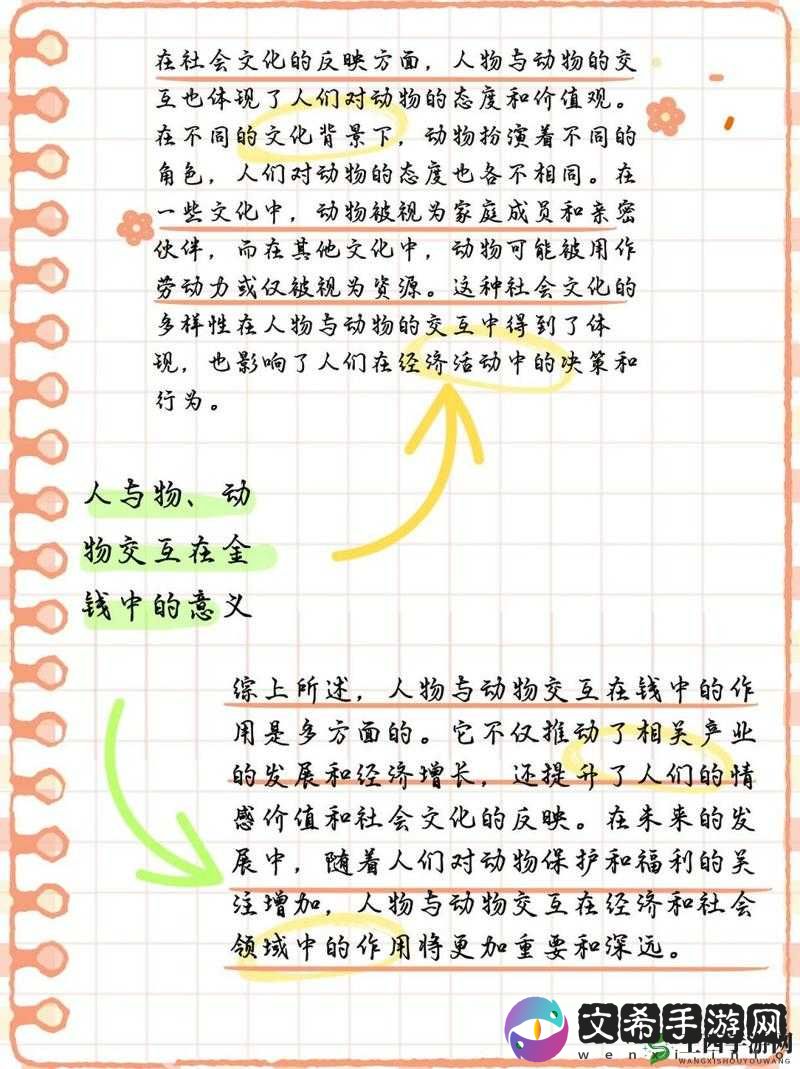 在社会文化的反映方面，人物与动物的交
互也体现了人们对动物的态度和价值观。
在不同的文化背景下，动物扮演着不同的
角色，人们对动物的态度也各不相同。在
一些文化中，动物被视为家庭成员和亲密
伙伴，而在其他文化中，动物可能被用作
劳动力或仅被视为资源。这种社会文化的
多样性在人物与动物的交互中得到了体
现，也影响了人们在经济活动中的决策和
行为。
人与物、动
物交互在金
钱中的意义
综上所述，人物与动物交互在钱中的作
用是多方面的。它不仅推动了相关产业
的发展和经济增长，还提升了人们的情
感价值和社会文化的反映。在未来的发
展中，随着人们对动物保护和福利的关
注增加，人物与动物交互在经济和社会
领域中的作用将更加重要和深远。
文希手游网
WANGXISHOUYOUWANG